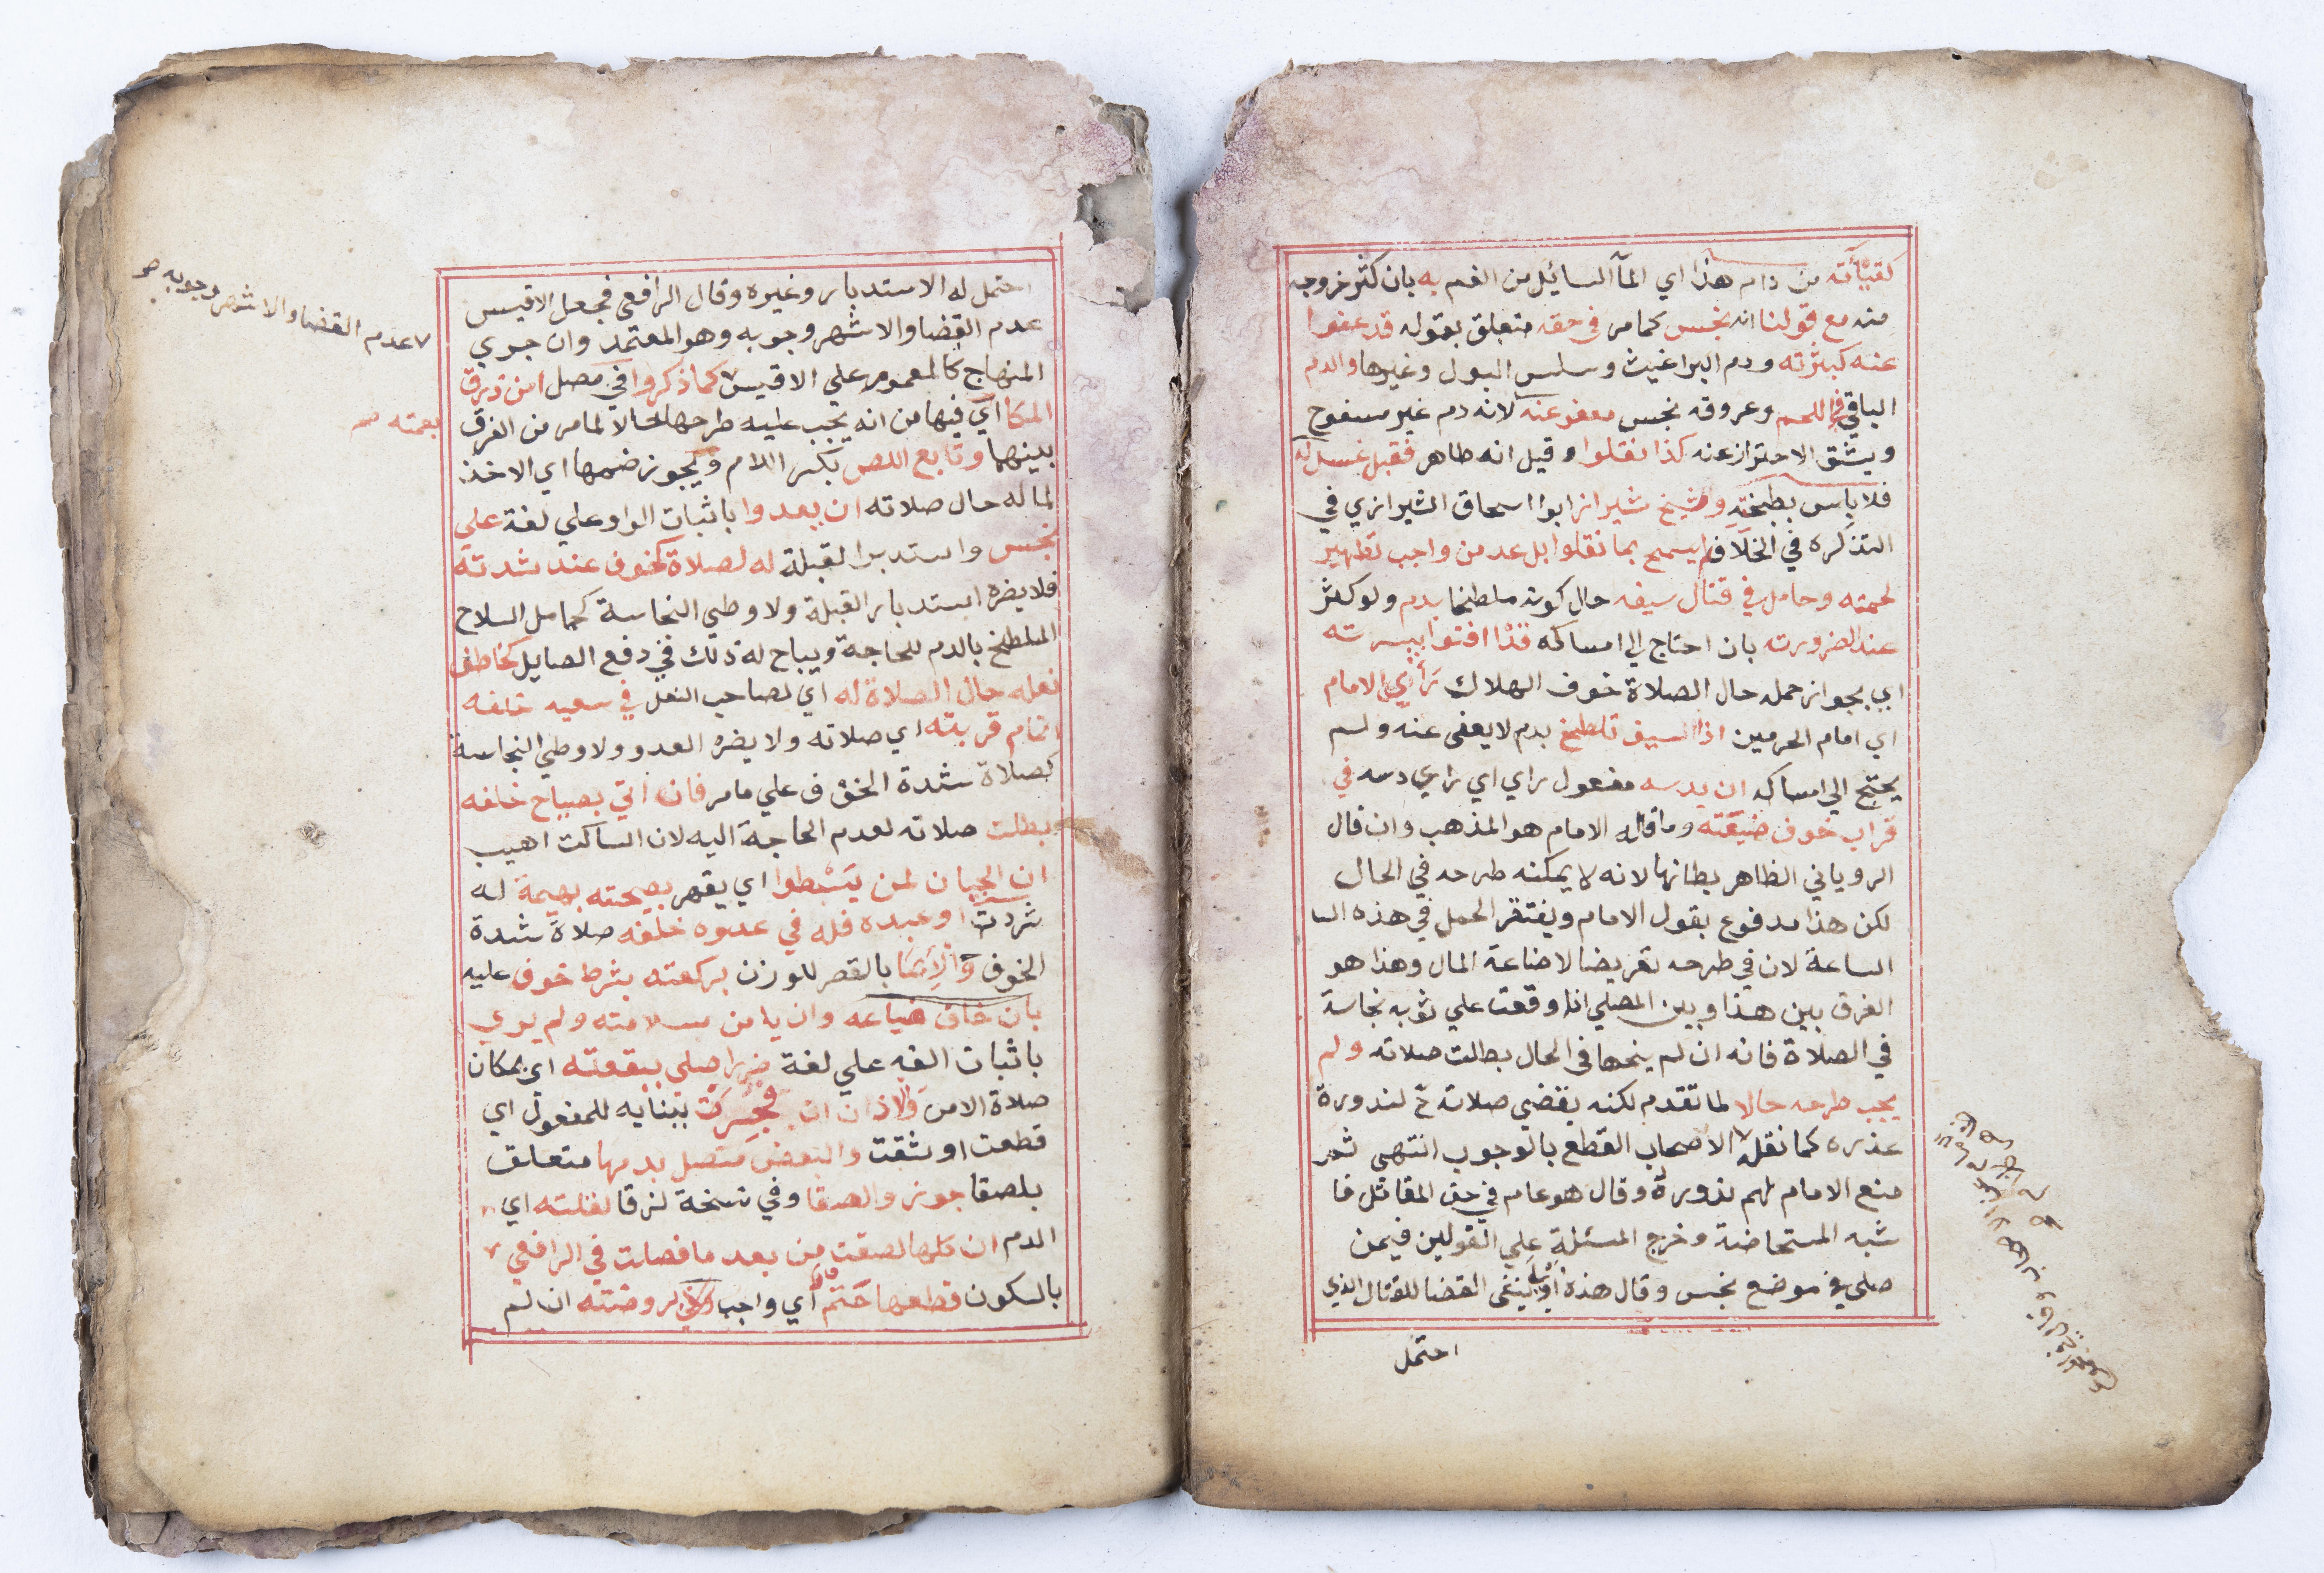 كقيأته من دام هذا اي المآ السائيل من الفم به بان كثر خروجه
منه مع قولنا انه نجس كمامر في حقه متعلق بقوله قد عفوا
عنه كبثرته ودم البراغيث وسلس البول وغيرها والدم
الباقي في اللحم وعروقه نجس معفو عنه لانه دم غير مسفوح
ويشق الاحتراز عنه كذا نقلوا وقيل انه طاهر فقبل غسل له
فلا باس بطبخته وشيخ شيراز ابوا اسحاق الشيرازي في
التذكره في الخلاف لم يسمح بما نقلوا بل عد من واجب تطهير
لحمته وحامل في قتال سيفه حال كونه ملطخا بدم ولو كثر
عند الضرورته بان احتاج الي امساكه قذا افتوا بيسرته
اي بجواز حمله حال الصلاة خوف الهلاك رأي الامام
اي امام الحرمين اذا السيف تلطخ بدم لا يعفى عنه ولم
يحتج الي امساكه ان يدسه مفعول راي اي راي دسه في
قراب خوف ضيقته وماقاله الامام هو المذهب وان قال
الروياني الظاهر بطلانها لانه لا يمكنه طرحه في الحال
لكن هذا مدفوع بقول الامام ويفتقر الحمل في هذه السا
الساعة لان في طرحه تعريضا لاضاعة المال وهذا هو
الفرق بين هذا وبين المصلي اذا وقعت علي ثوبه نجاسة
في الصلاة فانه ان لم ينحها في الحال بطلت صلاته ولم
يجب طرحه حالا لما تقدم لكنه يقضي صلاته ح لندورة
عذره كما نقله الاصحاب القطع بالوجوب انتهى ثم
منع الامام لهم ندورة وقال هو عام في حق المقاتل فا
شبه المستحاضة وخرج المسئلة علي القولين فيمن
صلى في موضع نجس وقال هذه اولي بنفى القضا للقتال الذي
احتمل
احتمل له الاستدبار وغيره وقال الرافعي فجعل الاقيس
عدم القضا والاشهر وجوبه وهو المعتمد وان جري
المنهاج كالمعمور علي الاقيس كما ذكروا في مصل امن ذرق
المكا اي فيها من انه يجب عليه طرحها لحالا لما مر من الفرق
بينهما وتابع اللص بكسر اللام ويجوز ضمها اي الاخذ
لماله حال صلاته ان يعدوا باثبات الواو علي لغة على
نجس واستدبر القبلة له لصلاة كخوف عند شدته
فلا يضره استدبار القبلة ولا وطي النجاسة كحامل السلاح
الملطخ بالدم للحاجة ويباح له ذلك في دفع الصايل كخاطف
نعله حال الصلاة له اي لصاحب النعل في سعيه خلفه
اتمام قربته اي صلاته ولا يضره العدو ولا وطي النجاسة
كصلاة شدة الخوف علي مامر فان اتي بصياح خلفه
بطلت صلاته لعدم الحاجة اليه لان الساكت اهيب
ان الجبان لمن يتسطوا اي يقهر بصيحته بهيمة له
شردت او عبده فله في عدوه خلفه صلاة شدة
الخوف والايما بالقصر للوزن بركعته بشرط خوف عليه
بان خاف ضياعه وان يامن سلامته ولم يري
باثبات الفه علي لغة ضررا صلي ببقعته اي بمكان
صلاة الامن والاذان ان فجرت ببنايه للمفعول اي
قطعت او شقت والبعض متصل بدمها متعلق
بلصقا جوز والصقا وفي نسخة لزقا لفلته اي
الدم ان كلها لصقت من بعد ما فصلت في الرافعي
بالسكون قطعها حتم اي واجب لروضته ان لم
عدم القضا والاشهر وجوبه صح
بعمته صح